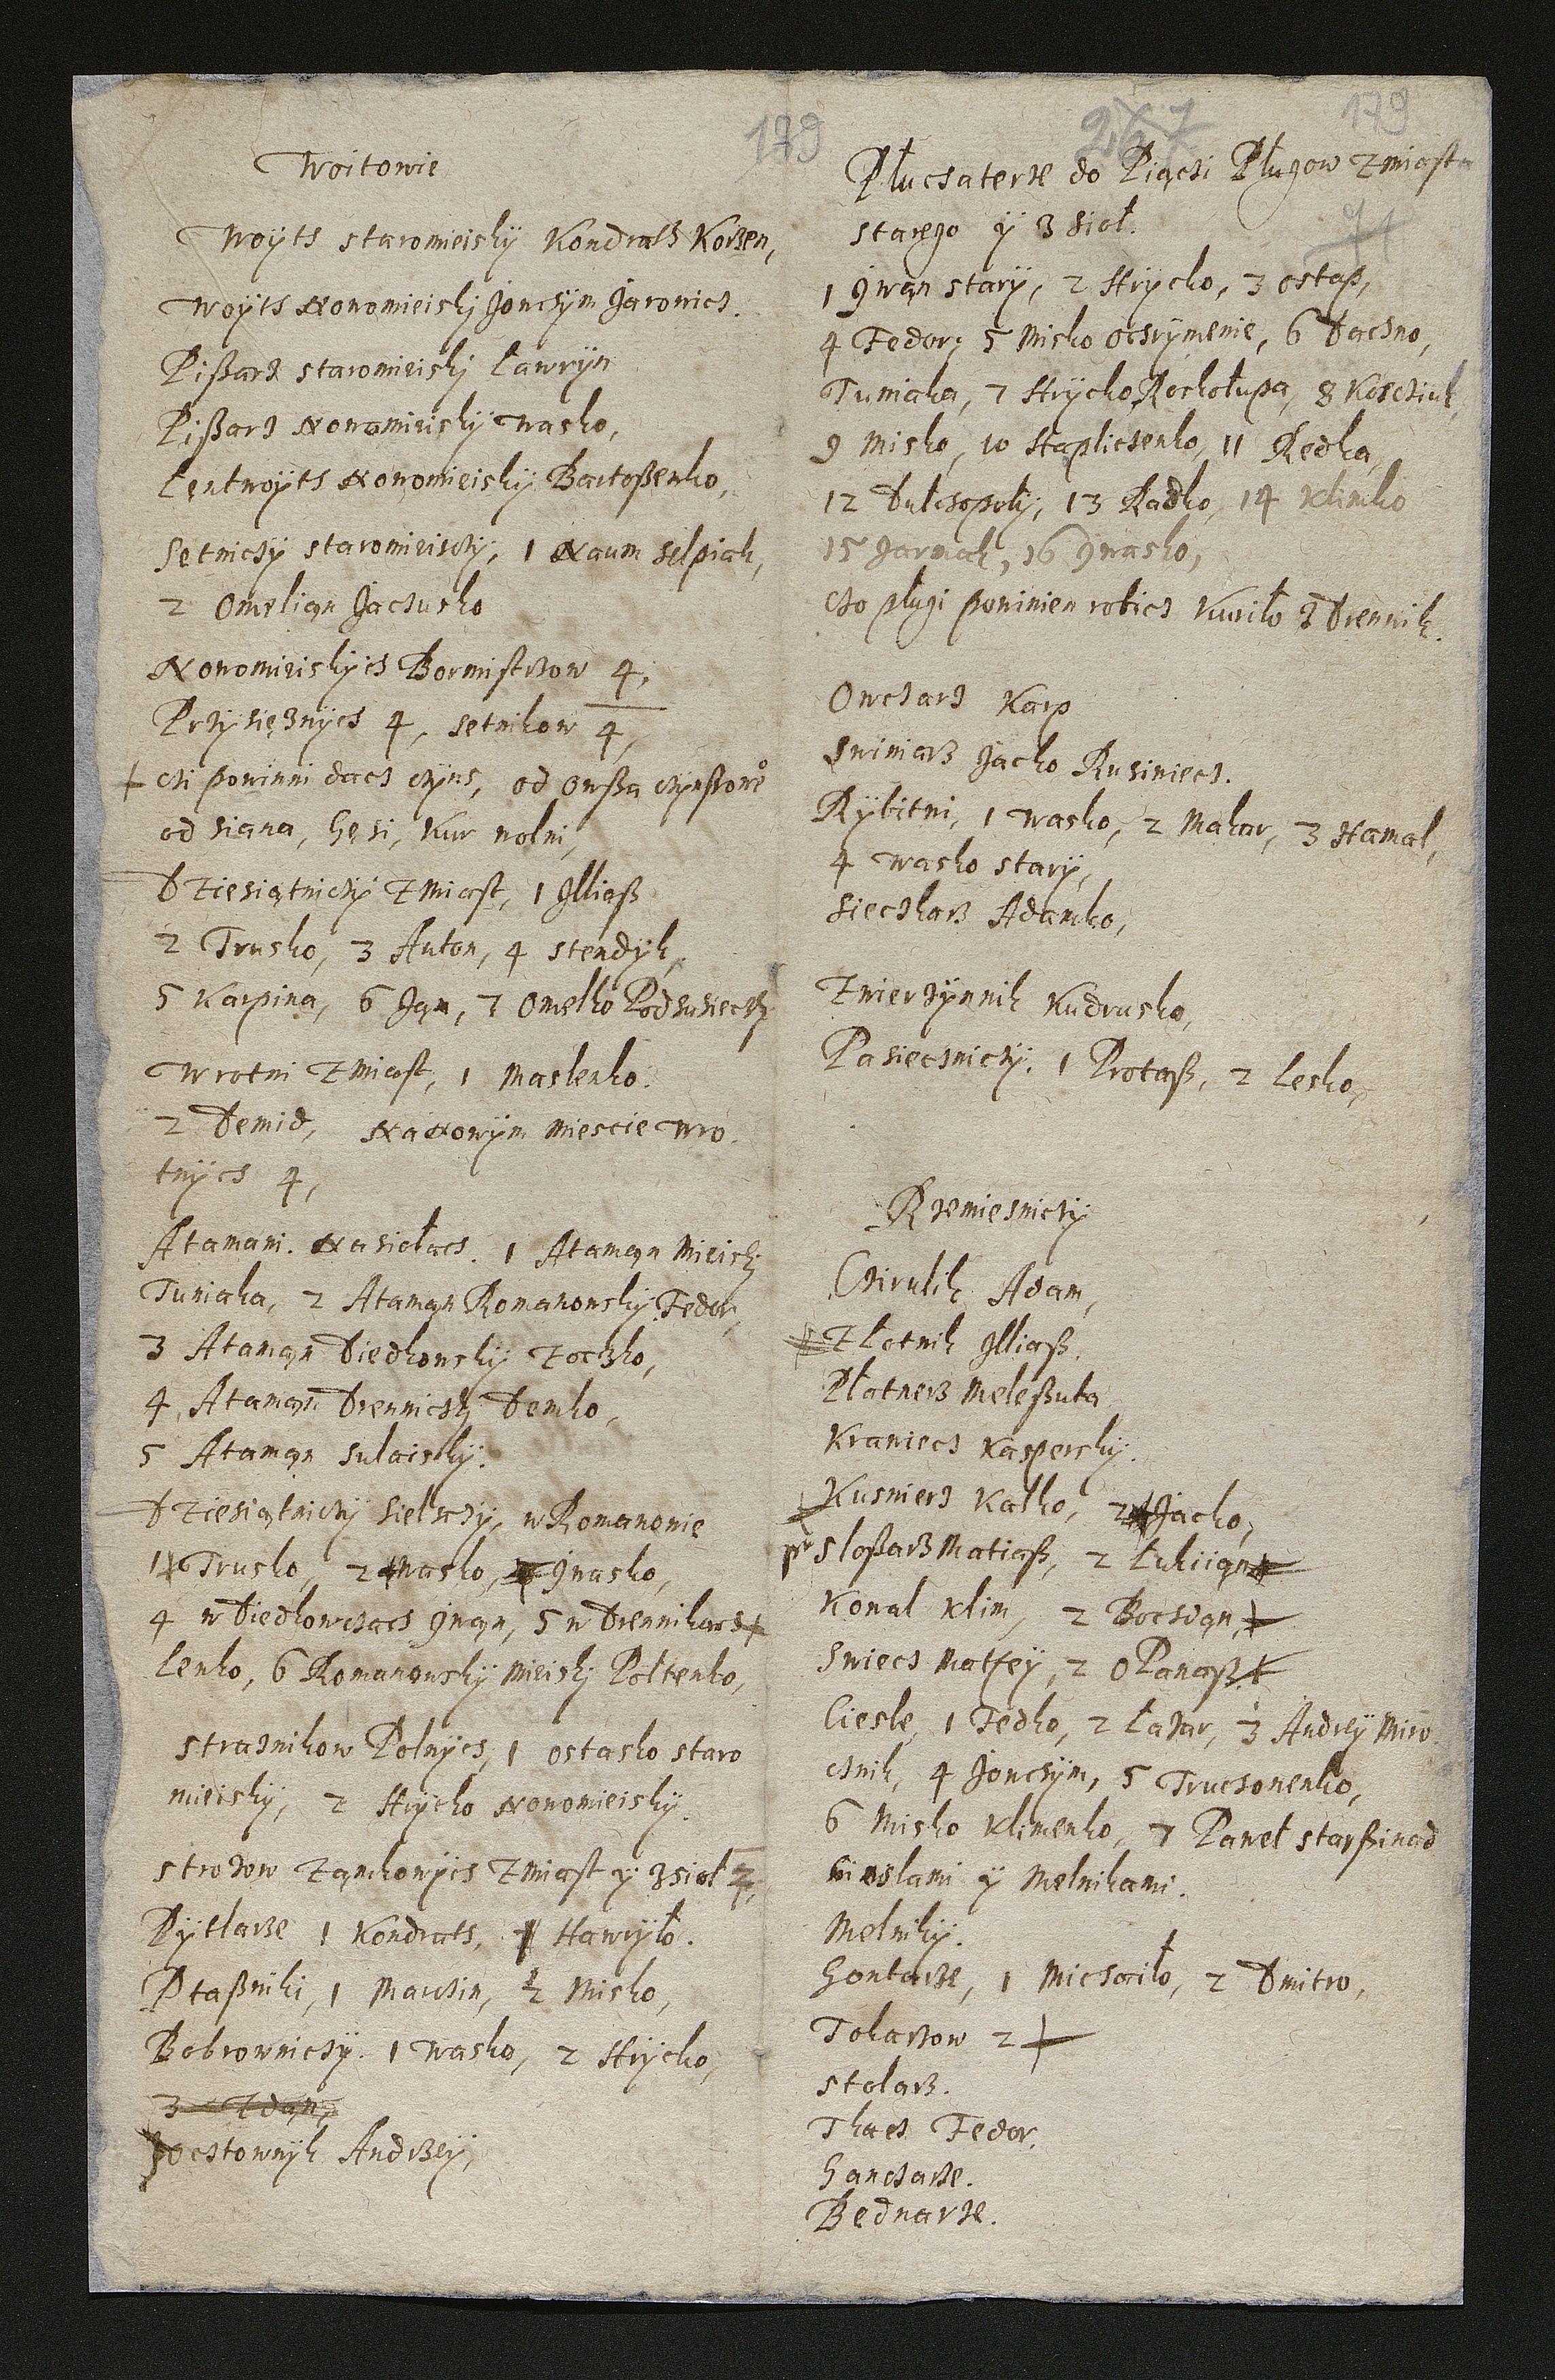 179
Woitowie
Woÿts staromieiskÿ Kondrath Korzen,
Woÿts Nowomieiskj Jonchÿm Jarowics.
Pißarz staromieiskj Ławrÿn
Pißarz Nowomieiskÿ Wasko,
Lentwoÿts Nowomieiskÿ Bartoßenko,
Setniczÿ staromieisczÿ, 1 Naum Selpiak,
2 Omelian Jacsusko
Nowomieiskÿcs Bormistrzow 4,
Przÿsiężnÿcs 4, setnikow 4,
czi powinni dacs czÿns, od owßa czÿnßowe°
od siana, Gęsi, Kur wolni,
Dziesiątniczÿ z Miast, 1 Jlliaß
2 Trusko, 3 Anton, 4 Stendÿk,
5 Karpina, 6 Jan, 7 Omelko Podsusieczkÿ
Wrotni z Miast, 1 Maslenko.
2 Demid, Na Nowÿm Miescie wro
tnÿcs 4,
Atamani. Na siołacs. 1 Ataman Mieiskj
Tuniaka, 2 Ataman Romanowskÿ Fedor,
3 Ataman Diedkowskÿ Zoczko,
4 Ataman Drewniczkj Demko,
5 Ataman Sulaiskÿ.
Dziesiątniczÿ Sielsczÿ, w Romanowie
1 Trusko, 2 Wasko, Jwasko,
4 w Diedkowczacs Jwan, 5 w Drewnikacs
Lenko, 6 Romanowskÿ Mieiskj Połtenko,
Straznikow Polnÿcs, 1 Ostasko staro
mieiskÿ, 2 Hrÿcko Nowomieiskÿ.
Strozow Zamkowÿcs z Miast ÿ z sioł
Pÿtlarze 1 Kondrats, Hawrÿło.
Ptaßniki, 1 Marczin, 2 Misko,
Bobrowniczÿ. 1 Wasko, 2 Hrÿcko,
3 Zdan,
Andrzeÿ,
267
179
Płucsaterze do Piączi Pługow z miasta
starego ÿ 3 sioł.
1 Jwan starÿ, 2 Hrÿcko, 3 Ostaß,
4 Fedor, 5 Misko Ocsrÿmenie, 6 Dacsno,
Tuniaka, 7 Hrÿcko Rochołupa, 8 Koscziuk,
9 Misko, 10 Haplicsenko, 11 Redka,
12 Dułcsopolÿ, 13 Radko, 14 Klimko
15 Jarmak, 16 Jwasko,
czo pługi powinien robics Kuriło z Drewnik.
Owczarz Karp
Swiniarz Jacko Rusiniecs.
Rÿbitni, 1 Wasko, 2 Makar, 3 Hamal,
4 Wasko starÿ,
Sieczkarz Adamko,
Zwierzÿnnik Kudrusko,
Pasiecsniczÿ. 1 Protaß, 2 Lesko,
Rzemiesniczÿ
Czirulik Adam,
Złotnik Jlliaß.
Płatnerz Meleßuta
Krawiecs Kasperskÿ.
Kusnierz Kalko, 2 Jacko,
Sloßarz Matiaß, 2 Łukiian
Kowal Klim, 2 Bocsdan,
Swiecs Matfeÿ, 2 OPanaß
Ciesle, 1 Fedko, 2 Łazar, 3 Andreÿ Miro
csnik, 4 Jonchÿm, 5 Trucsonenko,
6 Misko Klimenko, 7 Paweł starßi nad
Cieslami ÿ Melnikami.
Melnikÿ.
Gontarze, 1 Micsaiło, 2 Dmitro,
Tokarzow 2
Stolarz.
Tkacs Fedor.
Ganczarze.
Bednarze.